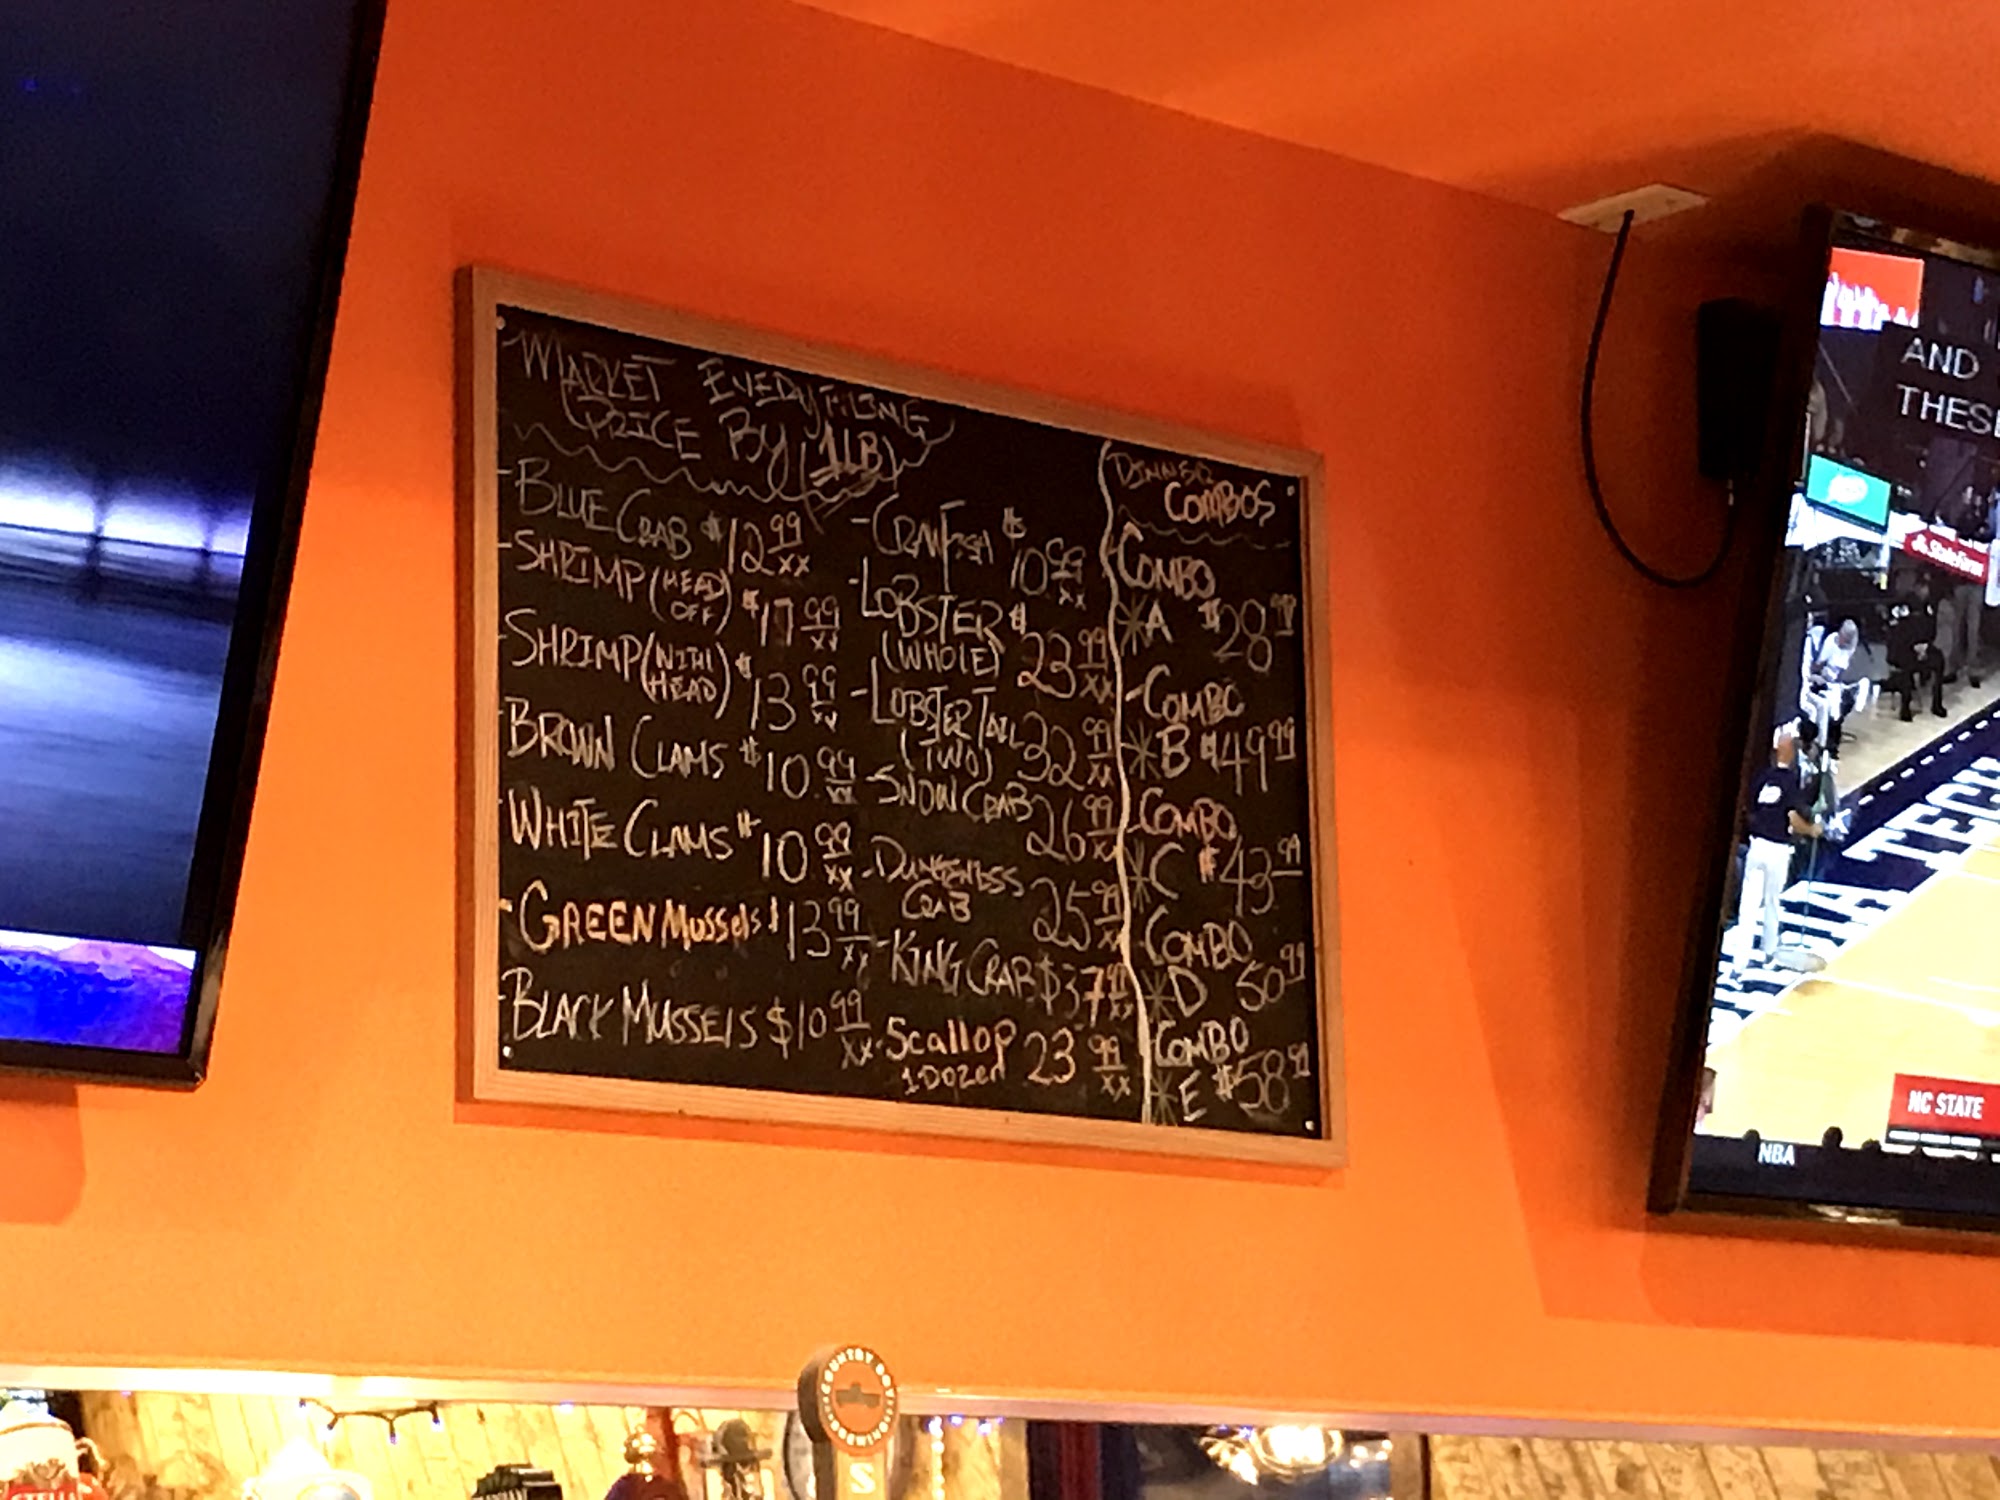 MARKET EVERYTHING
PRICE BY (1LB)
- BLUE CRAB $12.99 xx
- SHRIMP (HEAD OFF) $17.99 xx
- SHRIMP (WITH HEAD) $13.99 xx
- BROWN CLAMS $10.99 xx
- WHITE CLAMS $10.99 xx
- GREEN Mussels $13 99 xx
- BLACK MUSSELS $10 99 xx
- CRAWFISH $10.99 xx
- LOBSTER (WHOLE) $23 99 xx
- LOBSTER TAIL (TWO) 32 99 xx
- SNOW CRAB 26 99 xx
- DUNGENESS CRAB 25 99 xx
- KING CRAB $37 99 xx
- Scallop 1 Dozen 23 99 xx
DINNER
COMBOS
COMBO
*A $28.99
- COMBO
*B $49 99
- COMBO
*C $43 99
COMBO
*D 50 99
COMBO
*E $58 99
AND
THESE
StateFarm
NC STATE
NBA
STELLA
S